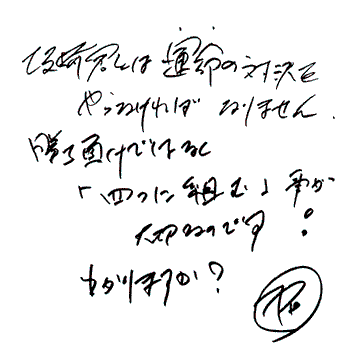 坂崎君とは運命の対決を
やらなければなりません.
勝ち負けではなく
「四つに組む」事が
大切なのです!
わかりますか?